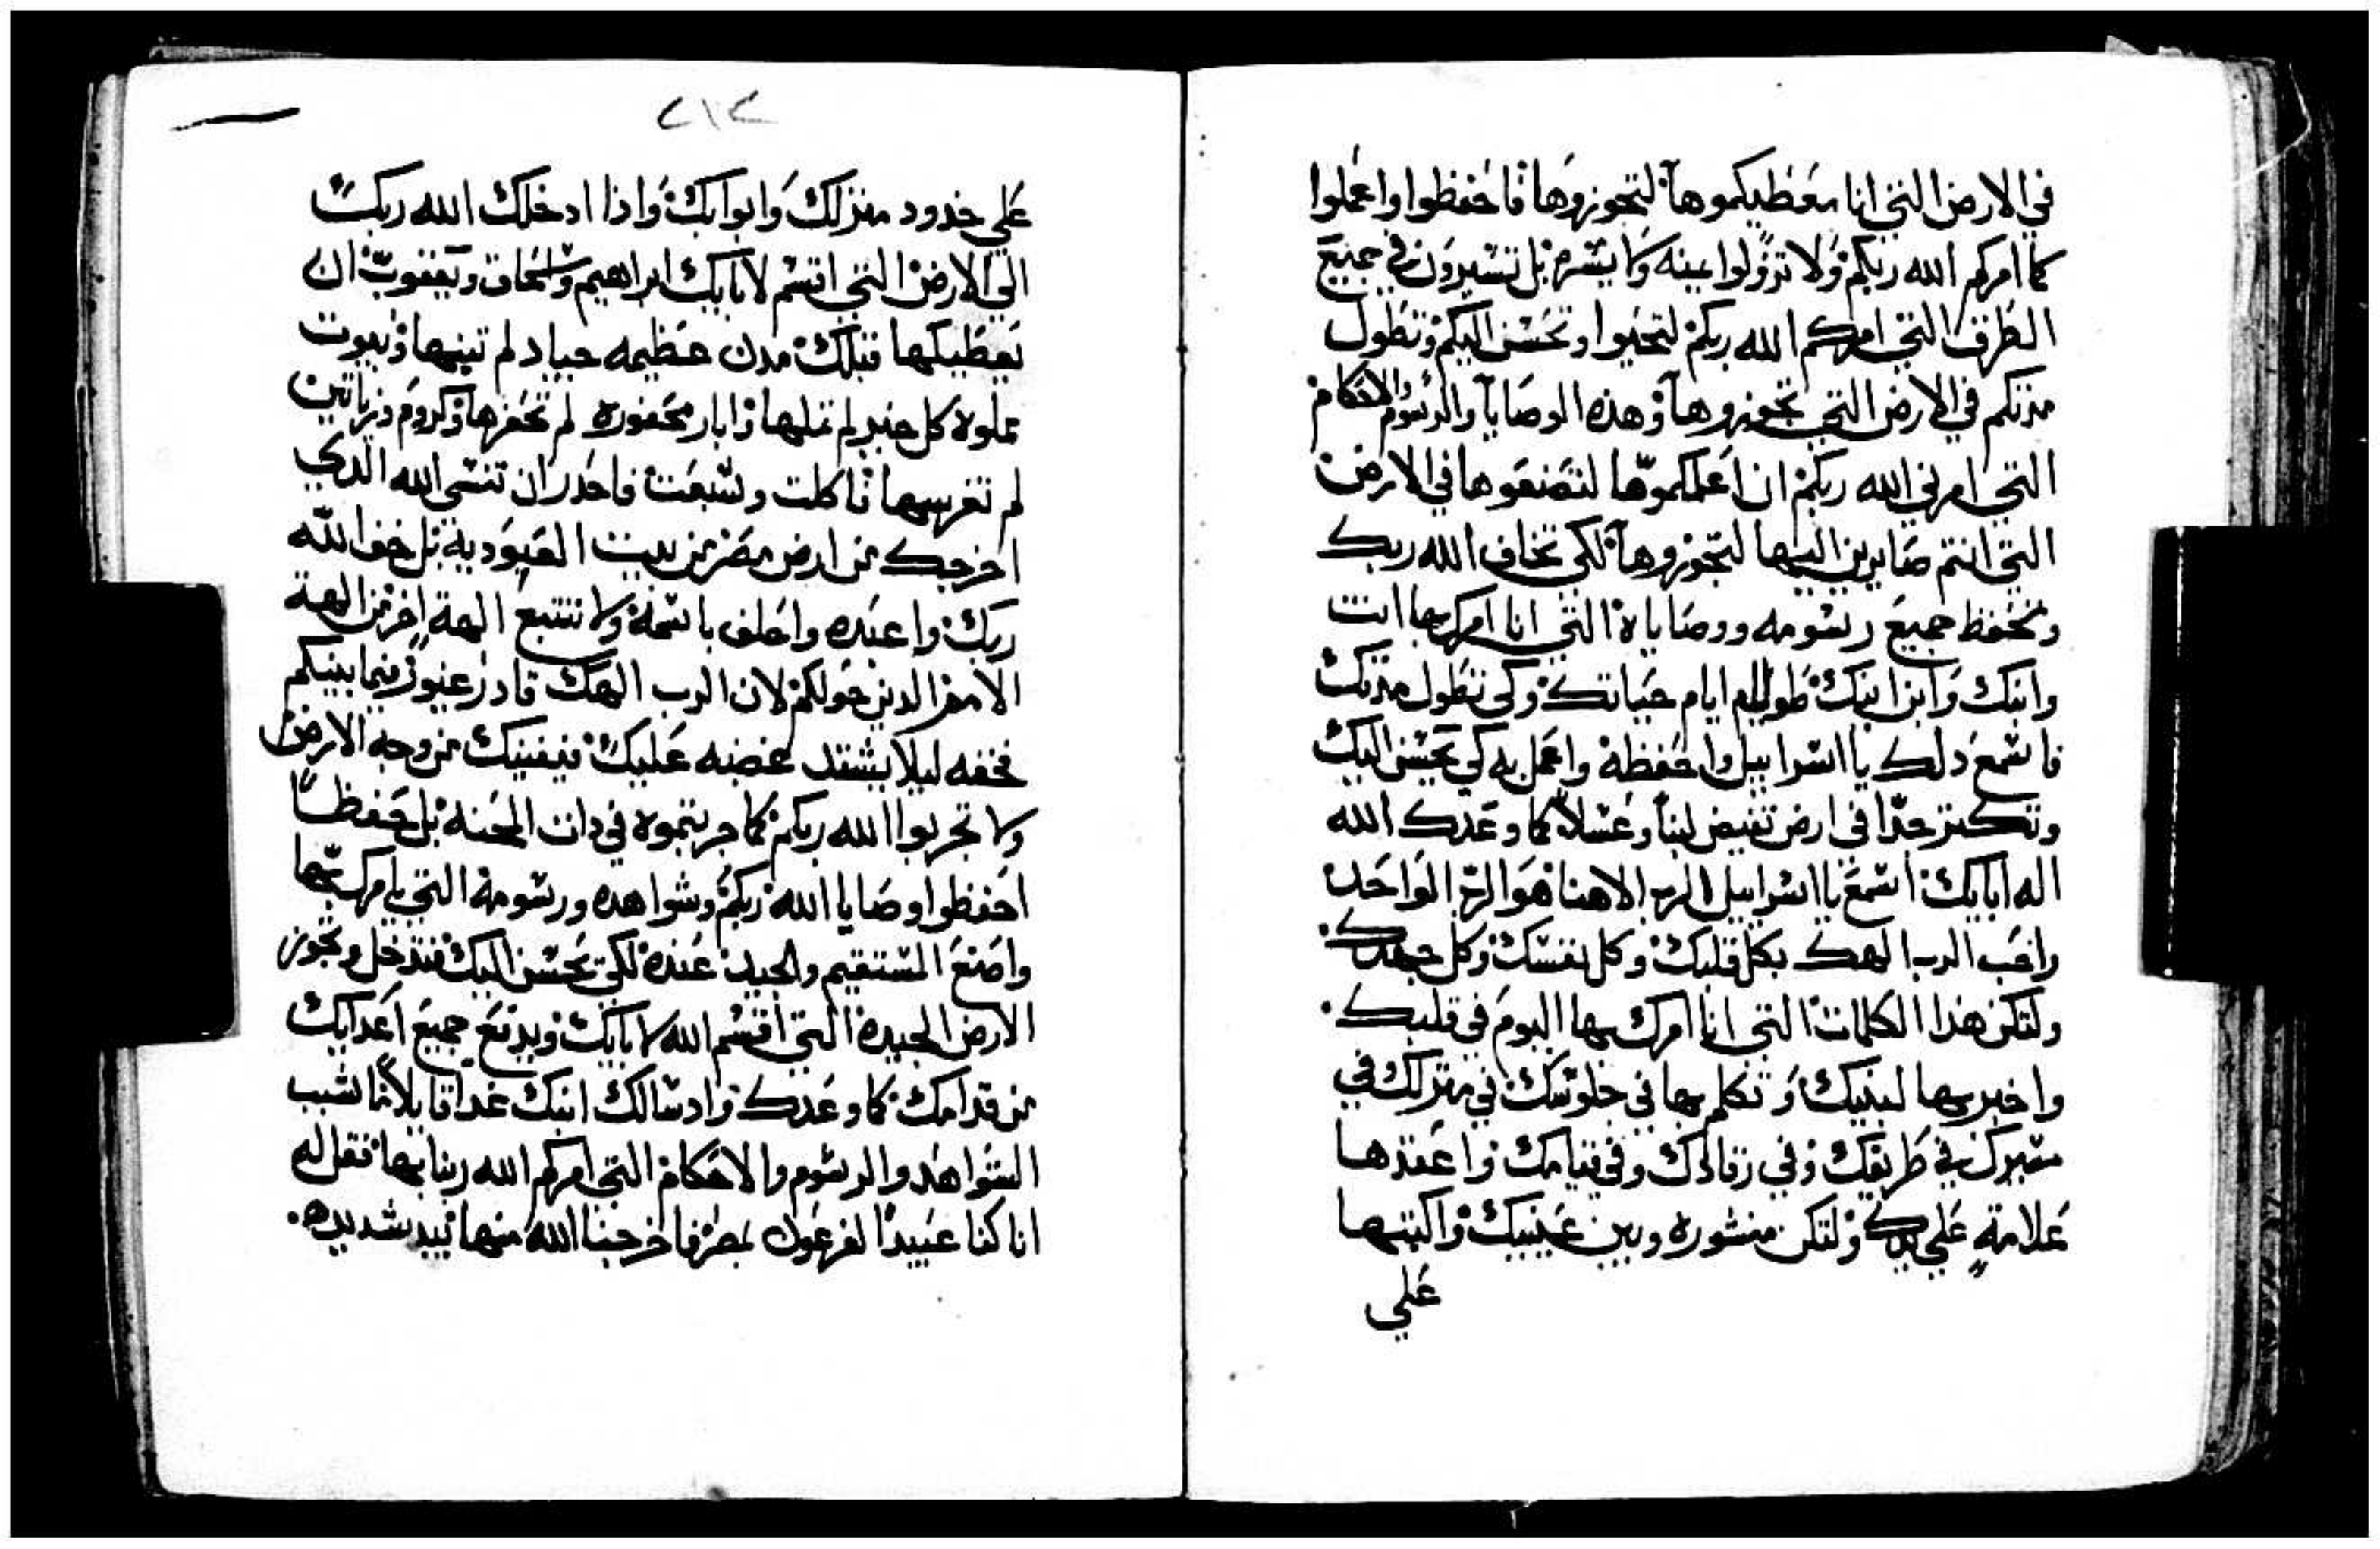 في الارض التي انا معطيكموها لتجوزوها فاحفظوا واعملوا
كما امركم الله ربكم ولا تزولوا يمنه ولا يسره بل تسيرون في جميع
الطرق التي امركم الله ربكم لتحيوا وتحسن اليكم وتطول
مدتكم في الارض التي تجوزوها وهذه الوصايا والرسوم والاحكام
التي امرني الله ربكم ان اعلمكموها لتصنعوها في الارض
التي انتم صايرين اليها لتجوزوها لكي تخاف الله ربك
وتحفظ جميع رسومه ووصاياه التي انا امرك بها انت
وابنك وابن ابنك طول ايام حياتك وكي تطول مدتك
فاسمع دلك يا اسراييل واحفظه واعمل به كي يحسن اليك
وتكتر جدا في ارض تفيض لبنا وعسلا كما وعدك الله
اله ابايك اسمع يا اسراييل الرب الاهنا هو الرب الواحد
واحب الرب الهك بكل قلبك وكل نفسك وكل جهدك
ولتكن هذا الكلمات التي انا امرك بها اليوم في قلبك
واخبر بها لبنيك وتكلم بها في جلوسك في منزلك في
مسيرك في طريقك وفي رقادك وفي قيامك واعقدها
علامة علي يدك ولتكن منشوره وبين عينيك واكتبها
علي
٢١٢
علي حدود منزلك وابوابك واذا ادخلك الله ربك
الي الارض التي اقسم لابايك ابراهيم واسحاق ويعقوب ان
يعطيكها فتلك مدن عظيمه جياد لم تبنها وبيوت
مملوة كل خير لم تملها وابار محفوره لم تحفرها وكروم وزياتين
لم تغرسها فاكلت وشبعت فاحدر ان تنسي الله الدي
اخرجك من ارض مصر من بيت العبودية بل خف الله
ربك واعبده واحلف باسمه ولا تتبع الهة اخر من الهة
الامم الدين حولكم لان الرب الهك قادر غيور فيما بينكم
فخفه ليلا يشتد غضبه عليك فيفنيك من وجه الارض
ولا تجربوا الله ربكم كما جربتموه في دات المحنه بل حفظا
احفظوا وصايا الله ربكم وشواهده ورسومه التي يامرك بها
واصنع المستقيم والجيد عنده لكي يحسن اليك فتدخل وتجوز
الارض الجيده التي اقسم الله لابايك ويدفع جميع اعدايك
من قدامك كما وعدك وادسالك ابنك غدا قايلا ما سبب
الشواهد والرسوم والاحكام التي امركم الله ربنا بها فقل له
انا كنا عبيدا لفرعون بمصر فاخرجنا الله منها بيد شديده